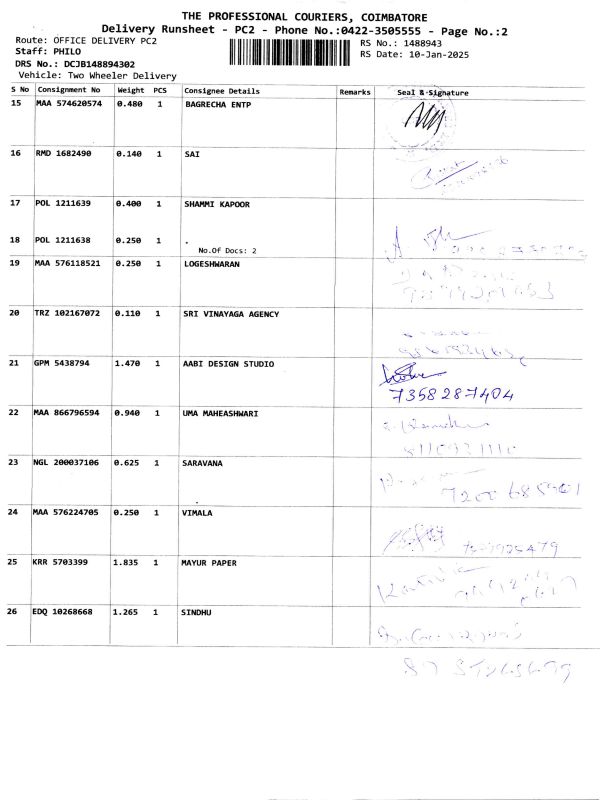 THE PROFESSIONAL COURIERS, COIMBATORE
Delivery Runsheet - PC2 - Phone No.:0422-3505555 - Page No.:2
Route: OFFICE DELIVERY PC2
Staff: PHILO
DRS No.: DCJB148894302
Vehicle: Two Wheeler Delivery
RS No.: 1488943
RS Date: 10-Jan-2025
S No Consignment No Weight PCS Consignee Details Remarks Seal & Signature
15 MAA 574620574 0.480 1 BAGRECHA ENTP
16 RMD 1682490 0.140 1 SAI
17 POL 1211639 0.400 1 SHAMMI KAPOOR
18 POL 1211638 0.250 1 .
No.Of Docs: 2
19 MAA 576118521 0.250 1 LOGESHWARAN
20 TRZ 102167072 0.110 1 SRI VINAYAGA AGENCY
21 GPM 5438794 1.470 1 AABI DESIGN STUDIO
7358287404
22 MAA 866796594 0.940 1 UMA MAHEASHWARI
23 NGL 200037106 0.625 1 SARAVANA
24 MAA 576224705 0.250 1 VIMALA
25 KRR 5703399 1.835 1 MAYUR PAPER
26 EDQ 10268668 1.265 1 SINDHU